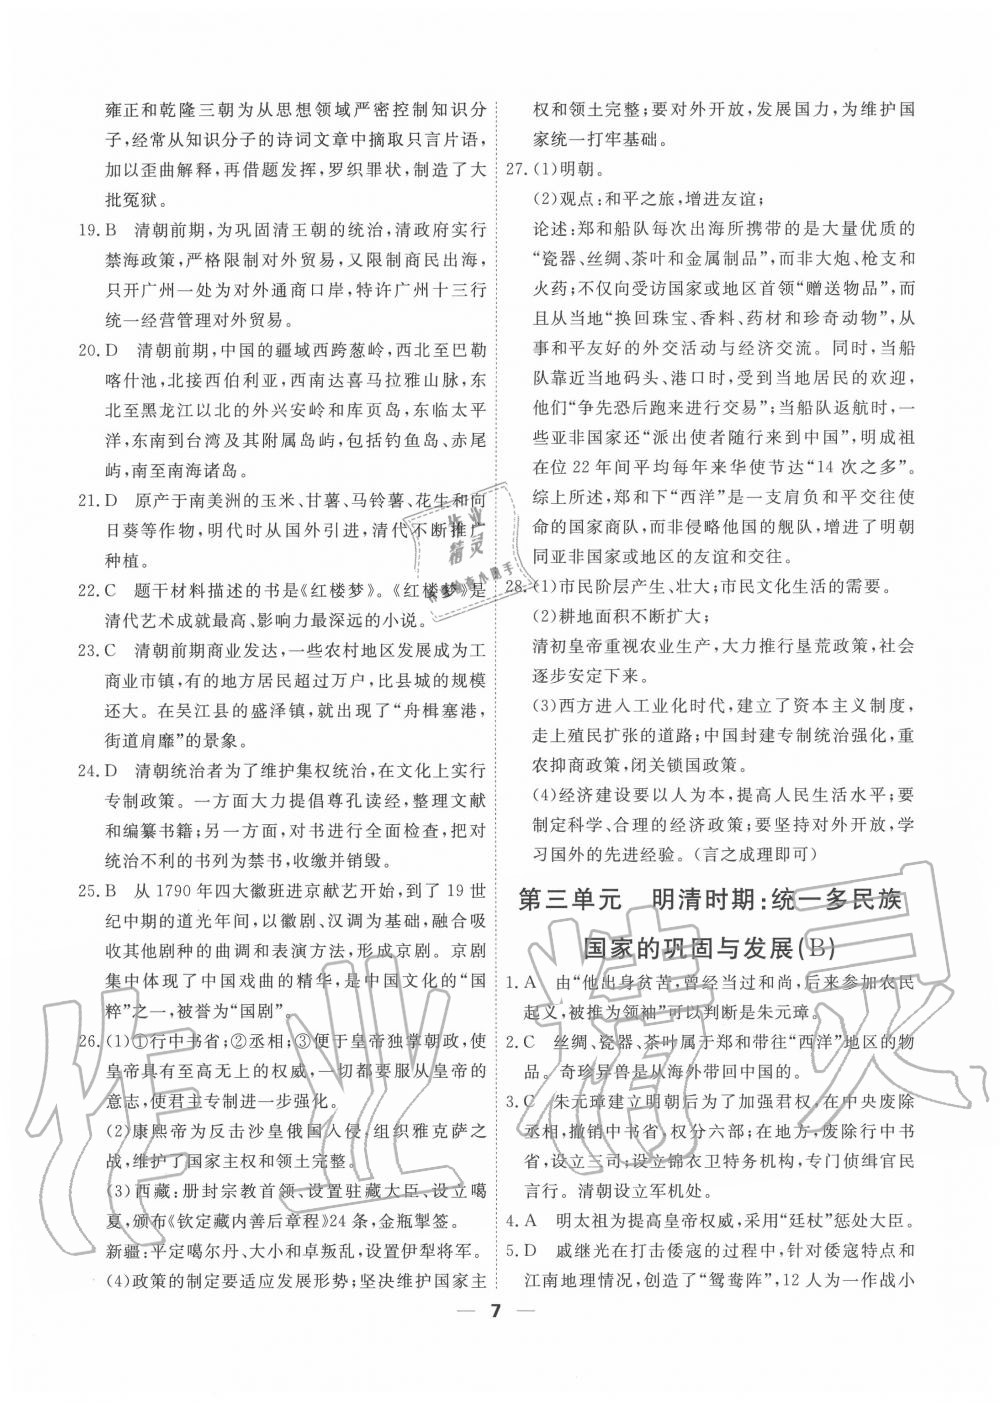 雍正和乾隆三朝为从思想领域严密控制知识分
子,经常从知识分子的诗词文章中摘取只言片语,
加以歪曲解释,再借题发挥,罗织罪状,制造了大
批冤狱。
19. B 清朝前期,为巩固清王朝的统治,清政府实行
禁海政策,严格限制对外贸易,又限制商民出海,
只开广州一处为对外通商口岸,特许广州十三行
统一经营管理对外贸易。
20. D 清朝前期,中国的疆域西跨葱岭,西北至巴勒
喀什池,北接西伯利亚,西南达喜马拉雅山脉,东
北至黑龙江以北的外兴安岭和库页岛,东临太平
洋,东南到台湾及其附属岛屿,包括钓鱼岛、赤尾
屿,南至南海诸岛。
21. D 原产于南美洲的玉米、甘薯、马铃薯、花生和向
日葵等作物,明代时从国外引进,清代不断推广
种植。
22. C 题干材料描述的书是《红楼梦》。《红楼梦》是
清代艺术成就最高、影响力最深远的小说。
23. C 清朝前期商业发达,一些农村地区发展成为工
商业市镇,有的地方居民超过万户,比县城的规模
还大。在吴江县的盛泽镇,就出现了“舟楫塞港,
街道肩靡”的景象。
24. D 清朝统治者为了维护集权统治,在文化上实行
专制政策。一方面大力提倡尊孔读经,整理文献
和编纂书籍;另一方面,对书进行全面检查,把对
统治不利的书列为禁书,收缴并销毁。
25. B 从 1790 年四大徽班进京献艺开始,到了 19 世
纪中期的道光年间,以徽剧、汉调为基础,融合吸
收其他剧种的曲调和表演方法,形成京剧。京剧
集中体现了中国戏曲的精华,是中国文化的“国
粹”之一,被誉为“国剧”。
26. (1)①行中书省;②丞相;③便于皇帝独掌朝政,使
皇帝具有至高无上的权威,一切都要服从皇帝的
意志,使君主专制进一步强化。
(2)康熙帝为反击沙皇俄国入侵,组织雅克萨之
战,维护了国家主权和领土完整。
(3)西藏:册封宗教首领、设置驻藏大臣、设立噶
夏,颁布《钦定藏内善后章程》24 条,金瓶掣签。
新疆:平定噶尔丹、大小和卓叛乱,设置伊犁将军。
(4)政策的制定要适应发展形势;坚决维护国家主
权和领土完整;要对外开放,发展国力,为维护国
家统一打牢基础。
27. (1)明朝。
(2)观点:和平之旅,增进友谊;
论述:郑和船队每次出海所携带的是大量优质的
“瓷器、丝绸、茶叶和金属制品”,而非大炮、枪支和
火药;不仅向受访国家或地区首领“赠送物品”,而
且从当地“换回珠宝、香料、药材和珍奇动物”,从
事和平友好的外交活动与经济交流。同时,当船
队靠近当地码头、港口时,受到当地居民的欢迎,
他们“争先恐后跑来进行交易”;当船队返航时,一
些亚非国家还“派出使者随行来到中国”,明成祖
在位 22 年间平均每年来华使节达“14 次之多”。
综上所述,郑和下“西洋”是一支肩负和平交往使
命的国家商队,而非侵略他国的舰队,增进了明朝
同亚非国家或地区的友谊和交往。
28. (1)市民阶层产生、壮大;市民文化生活的需要。
(2)耕地面积不断扩大;
清初皇帝重视农业生产,大力推行垦荒政策,社会
逐步安定下来。
(3)西方进入工业化时代,建立了资本主义制度,
走上殖民扩张的道路;中国封建专制统治强化,重
农抑商政策,闭关锁国政策。
(4)经济建设要以人为本,提高人民生活水平;要
制定科学、合理的经济政策;要坚持对外开放,学
习国外的先进经验。(言之成理即可)
第三单元 明清时期:统一多民族
国家的巩固与发展(B)
1. A 由“他出身贫苦,曾经当过和尚,后来参加农民
起义,被推为领袖”可以判断是朱元璋。
2. C 丝绸、瓷器、茶叶属于郑和带往“西洋”地区的物
品。奇珍异兽是从海外带回中国的。
3. C 朱元璋建立明朝后为了加强君权,在中央废除
丞相,撤销中书省,权分六部;在地方,废除行中书
省,设立三司;设立锦衣卫特务机构,专门侦缉官民
言行。清朝设立军机处。
4. A 明太祖为提高皇帝权威,采用“廷杖”惩处大臣。
5. D 戚继光在打击倭寇的过程中,针对倭寇特点和
江南地理情况,创造了“鸳鸯阵”,12 人为一作战小
— 7 —
作业精灵
作业精灵
作业检查小助手